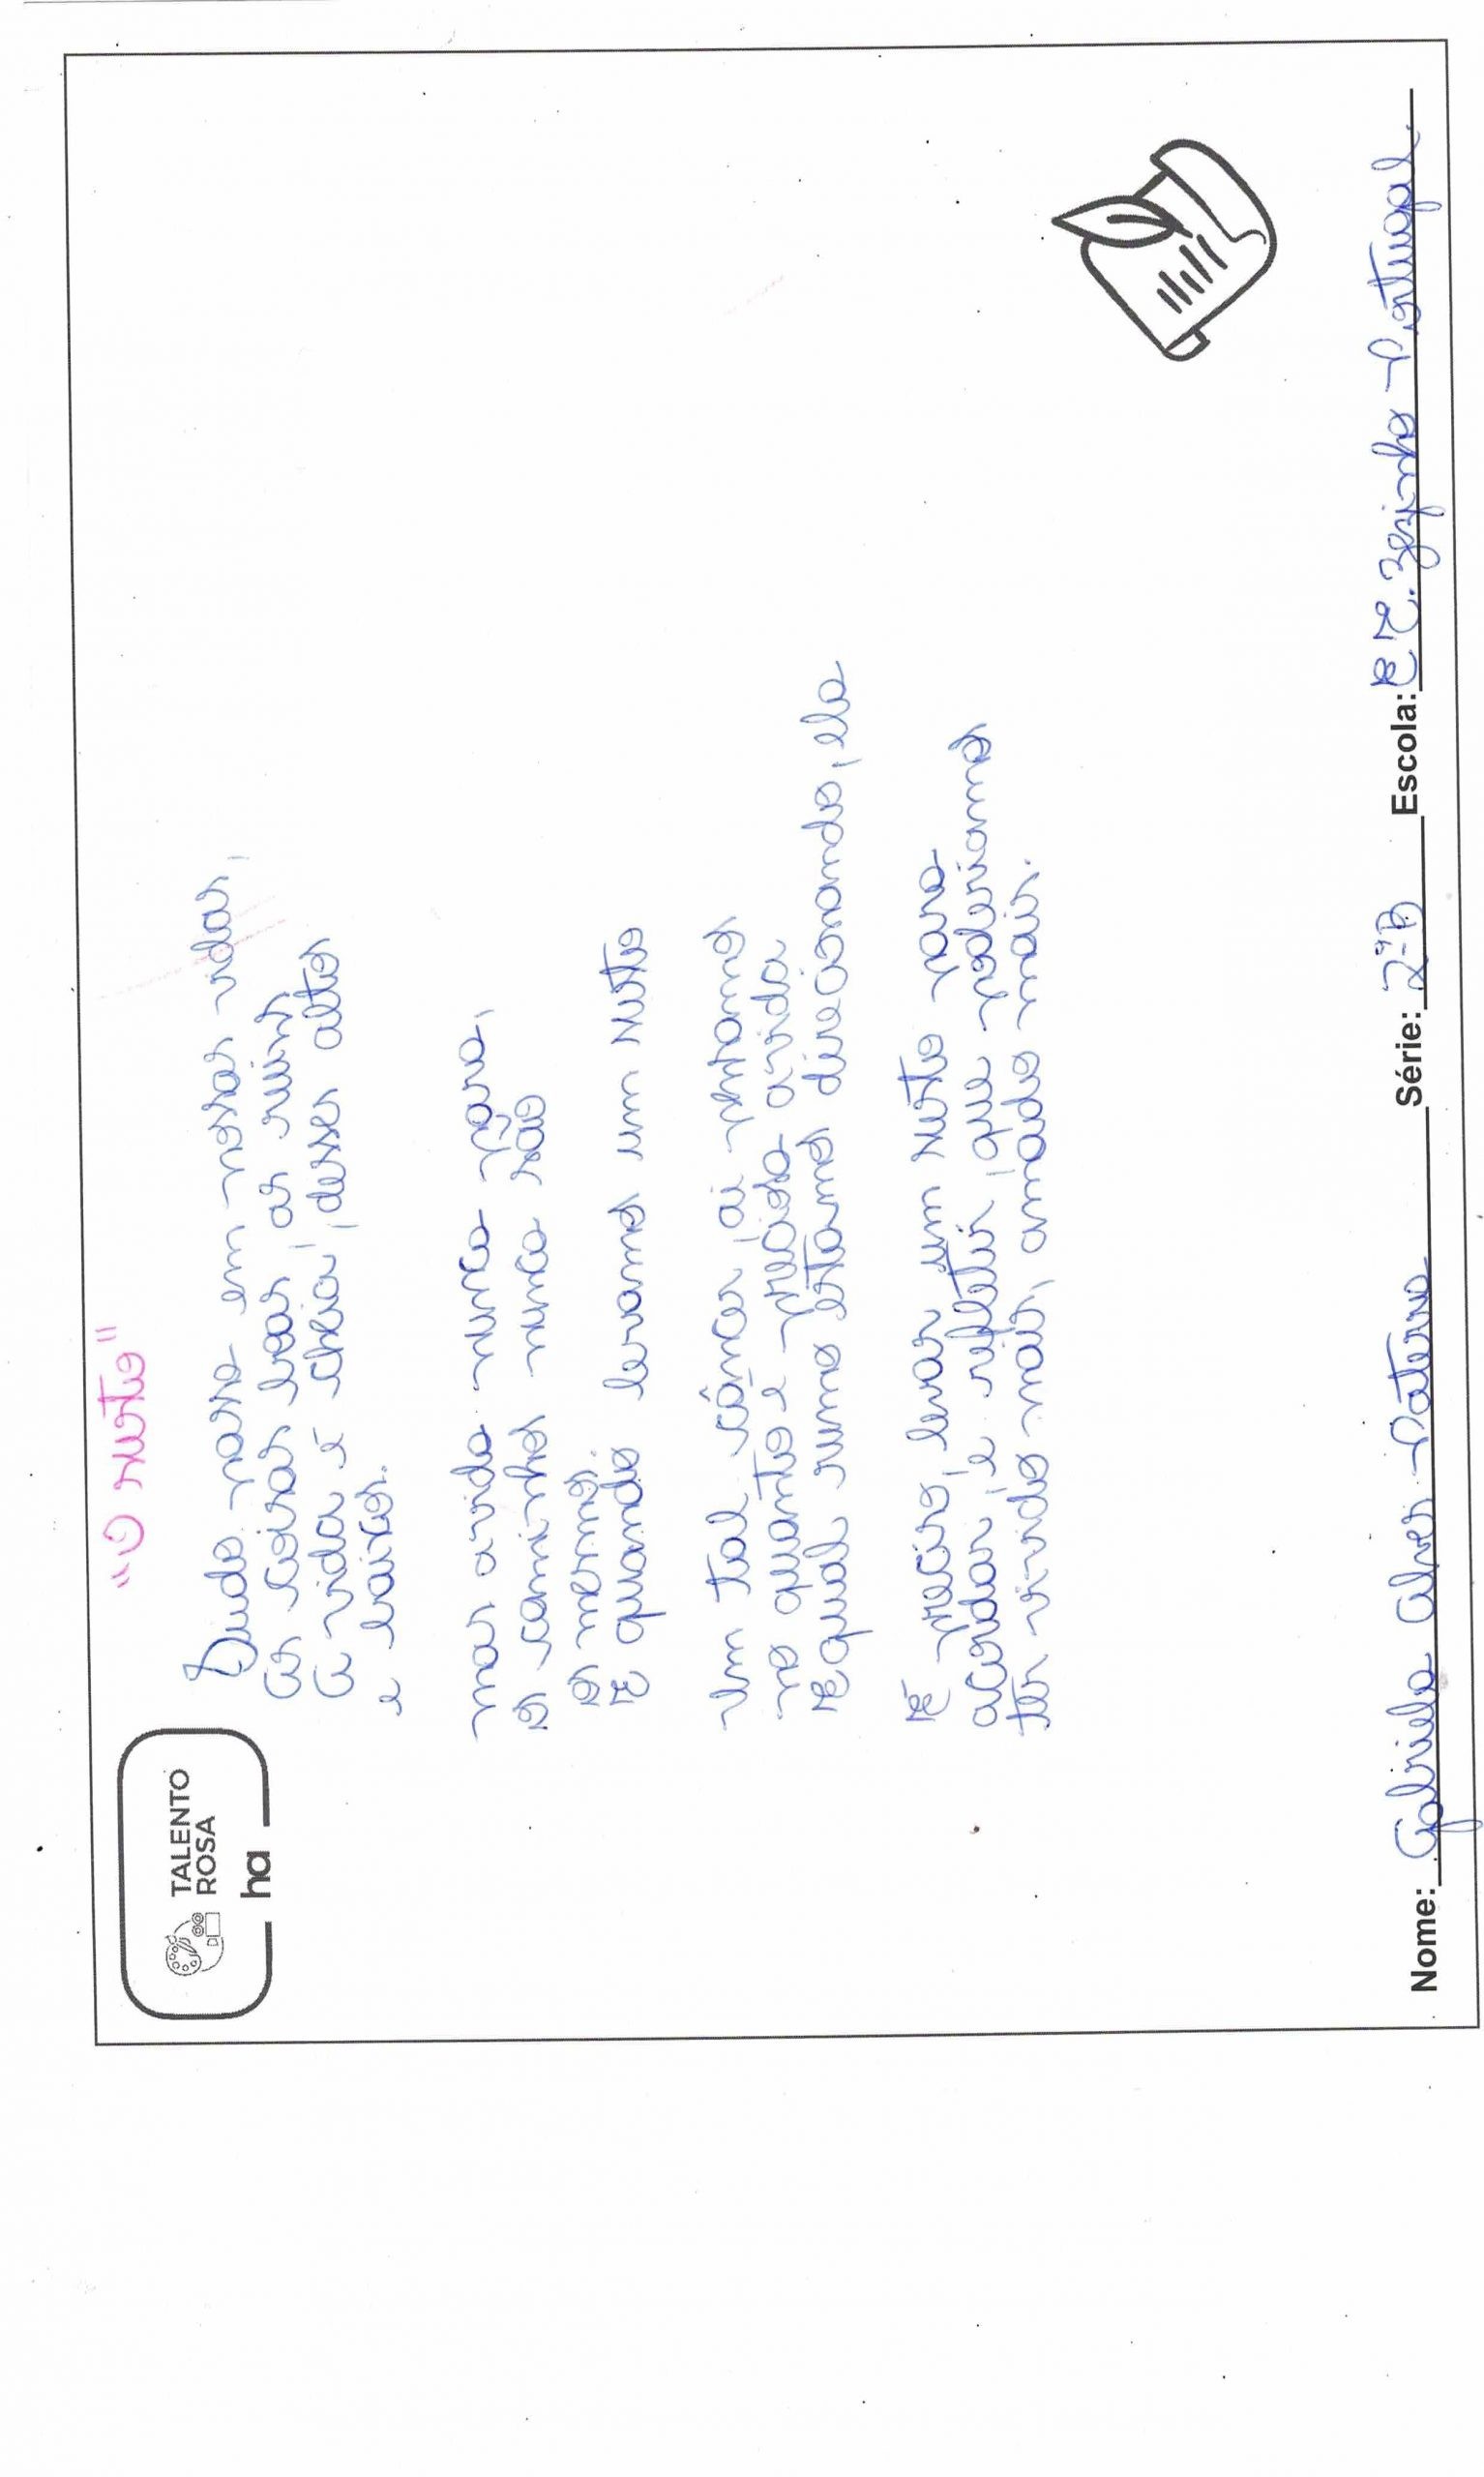 TALENTO
ROSA
ha
"O susto"
Tudo passa em nossas vidas,
As coisas boas, as ruins
A vida é cheia, desses altos
e baixos.
mas a vida nunca para,
os caminhos nunca são
os mesmos.
E quando levamos um susto
Um tal câncer, ai pensamos
no quanto é preciosa a vida
E qual rumo estamos direcionando, ela
É preciso, levar um susto para
acordar, e refletir, que poderiamos
ter vivido mais, amado mais.
Nome: Gabriela Alves Paterno Série: 2ºB Escola: E E. Zezinho Portugal